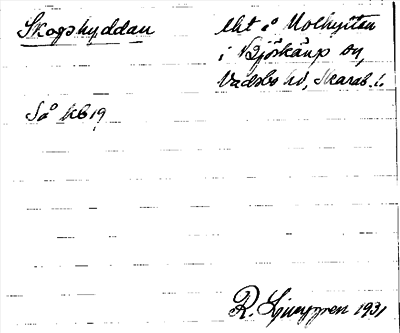 Skogshyddan
lht å Molhyttan
i Björkäng sn,
Vadsbo hd, Skarab. l.
Så kb 19
R. Ljunggren 1931